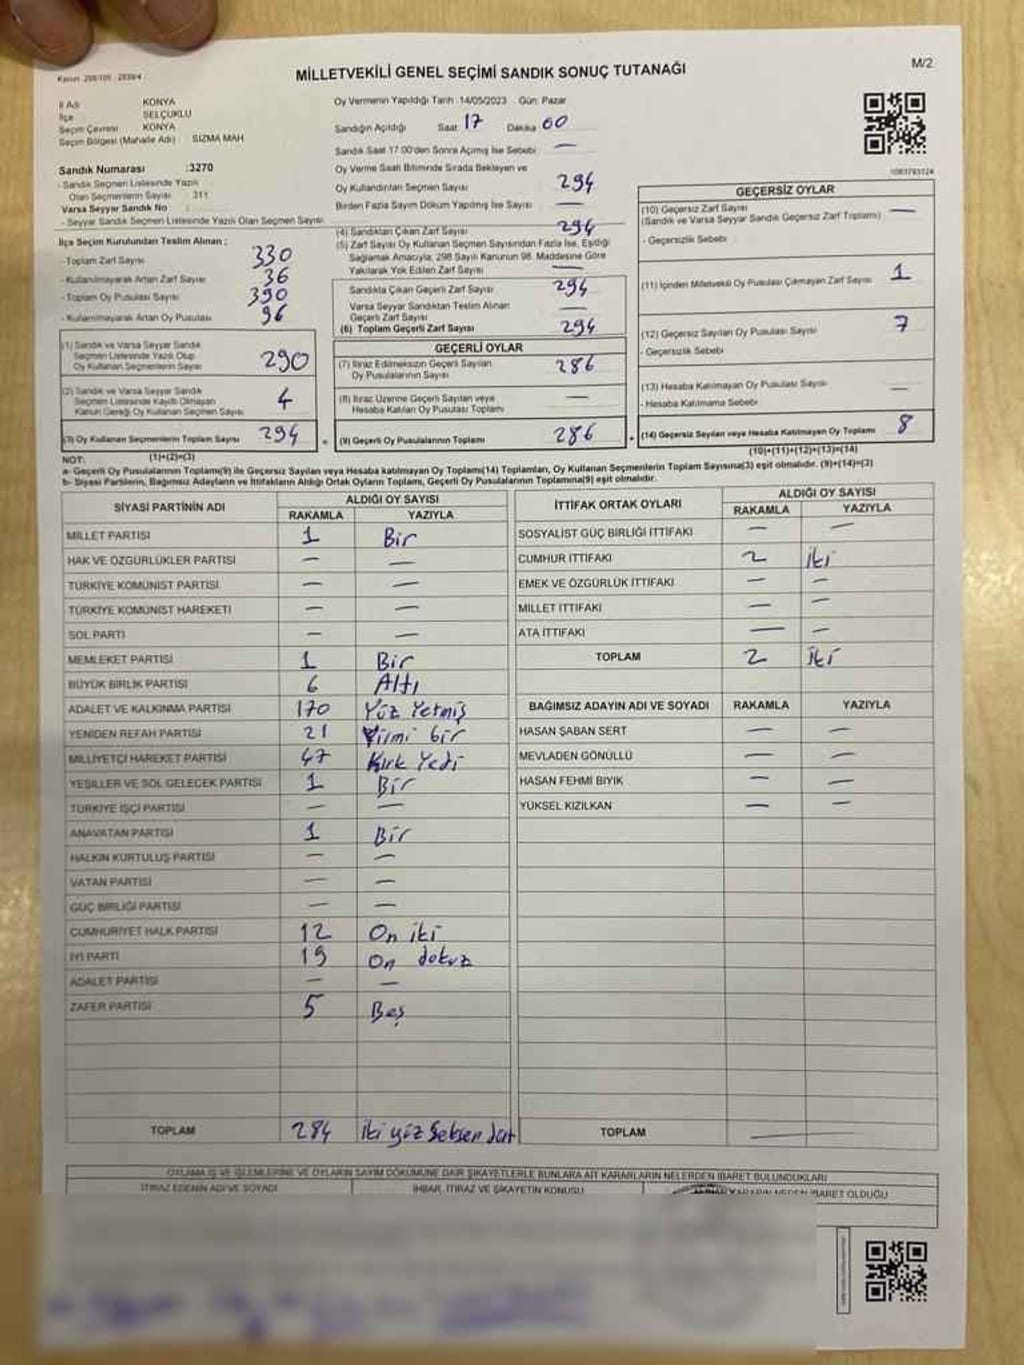 MİLLETVEKİLİ GENEL SEÇİMİ SANDIK SONUÇ TUTANAĞI
M/2
İl Adı KONYA
İlçe SELÇUKLU
Seçim Çevresi KONYA
Seçim Bölgesi (Mahalle Adı) SIZMA MAH
Sandık Numarası :3270
- Sandık Seçmen Listesinde Yazılı
Olan Seçmenlerin Sayısı : 311
Varsa Seyyar Sandık No :
- Seyyar Sandık Seçmen Listesinde Yazılı Olan Seçmen Sayısı
İlçe Seçim Kurulundan Teslim Alınan ;
-Toplam Zarf Sayısı 330
-Kullanılmayarak Artan Zarf Sayısı 36
-Toplam Oy Pusulası Sayısı 390
-Kullanılmayarak Artan Oy Pusulası 96
(1) Sandık ve Varsa Seyyar Sandık
Seçmen Listesinde Yazılı Olup
Oy Kullanan Seçmenlerin Sayısı 290
(2) Sandık ve Varsa Seyyar Sandık
Seçmen Listesinde Kayıtlı Olmayan
Kanun Gereği Oy Kullanan Seçmen Sayısı 4
(3) Oy Kullanan Seçmenlerin Toplam Sayısı 294
(1)+(2)=(3)
Oy Vermenin Yapıldığı Tarih :14/05/2023 Gün: Pazar
Sandığın Açıldığı Saat: 17 Dakika 00
Sandık Saat 17.00'den Sonra Açılmış İse Sebebi —
Oy Verme Saati Bitiminde Sırada Bekleyen ve
Oy Kullandırılan Seçmen Sayısı 294
Birden Fazla Sayım Döküm Yapılmış İse Sayısı —
(4) Sandıktan Çıkan Zarf Sayısı 294
(5) Zarf Sayısı Oy Kullanan Seçmen Sayısından Fazla İse, Eşitliği
Sağlamak Amacıyla, 298 Sayılı Kanunun 98. Maddesine Göre
Yakılarak Yok Edilen Zarf Sayısı —
Sandıkta Çıkan Geçerli Zarf Sayısı 294
Varsa Seyyar Sandıktan Teslim Alınan
Geçerli Zarf Sayısı —
(6) Toplam Geçerli Zarf Sayısı 294
GEÇERLİ OYLAR
(7) İtiraz Edilmeksizin Geçerli Sayılan
Oy Pusulalarının Sayısı 286
(8) İtiraz Üzerine Geçerli Sayılan veya
Hesaba Katılan Oy Pusulası Toplamı —
(9) Geçerli Oy Pusulalarının Toplamı 286
GEÇERSİZ OYLAR
(10) Geçersiz Zarf Sayısı
(Sandık ve Varsa Seyyar Sandık Geçersiz Zarf Toplamı) —
- Geçersizlik Sebebi
(11) İçinden Milletvekili Oy Pusulası Çıkmayan Zarf Sayısı 1
(12) Geçersiz Sayılan Oy Pusulası Sayısı 7
- Geçersizlik Sebebi
(13) Hesaba Katılmayan Oy Pusulası Sayısı —
- Hesaba Katılmama Sebebi
(14) Geçersiz Sayılan veya Hesaba Katılmayan Oy Toplamı 8
(10)+(11)+(12)+(13)=(14)
NOT:
a- Geçerli Oy Pusulalarının Toplamı(9) ile Geçersiz Sayılan veya Hesaba katılmayan Oy Toplamı(14) Toplamları, Oy Kullanan Seçmenlerin Toplam Sayısına(3) eşit olmalıdır. (9)+(14)=(3)
b- Siyasi Partilerin, Bağımsız Adayların ve İttifakların Aldığı Ortak Oyların Toplamı, Geçerli Oy Pusulalarının Toplamına(9) eşit olmalıdır.
SİYASİ PARTİNİN ADI ALDIĞI OY SAYISI
RAKAMLA YAZIYLA
MİLLET PARTİSİ 1 Bir
HAK VE ÖZGÜRLÜKLER PARTİSİ — —
TÜRKİYE KOMÜNİST PARTİSİ — —
TÜRKİYE KOMÜNİST HAREKETİ — —
SOL PARTİ — —
MEMLEKET PARTİSİ 1 Bir
BÜYÜK BİRLİK PARTİSİ 6 Altı
ADALET VE KALKINMA PARTİSİ 170 Yüz Yetmiş
YENİDEN REFAH PARTİSİ 21 Yirmi bir
MİLLİYETÇİ HAREKET PARTİSİ 47 Kırk Yedi
YEŞİLLER VE SOL GELECEK PARTİSİ 1 Bir
TÜRKİYE İŞÇİ PARTİSİ — —
ANAVATAN PARTİSİ 1 Bir
HALKIN KURTULUŞ PARTİSİ — —
VATAN PARTİSİ — —
GÜÇ BİRLİĞİ PARTİSİ — —
CUMHURİYET HALK PARTİSİ 12 On iki
İYİ PARTİ 19 On dokuz
ADALET PARTİSİ — —
ZAFER PARTİSİ 5 Beş
TOPLAM 284 iki yüz Seksen dört
İTTİFAK ORTAK OYLARI ALDIĞI OY SAYISI
RAKAMLA YAZIYLA
SOSYALİST GÜÇ BİRLİĞİ İTTİFAKI — —
CUMHUR İTTİFAKI 2 iki
EMEK VE ÖZGÜRLÜK İTTİFAKI — —
MİLLET İTTİFAKI — —
ATA İTTİFAKI — —
TOPLAM 2 iki
BAĞIMSIZ ADAYIN ADI VE SOYADI RAKAMLA YAZIYLA
HASAN ŞABAN SERT — —
MEVLADEN GÖNÜLLÜ — —
HASAN FEHMİ BIYIK — —
YÜKSEL KIZILKAN — —
TOPLAM —
OYLAMA İŞ VE İŞLEMLERİNE VE OYLARIN SAYIM DÖKÜMÜNE DAİR ŞİKAYETLERLE BUNLARA AİT KARARLARIN NELERDEN İBARET BULUNDUKLARI
İTİRAZ EDENİN ADI VE SOYADI İHBAR, İTİRAZ VE ŞİKAYETİN KONUSU KARARIN NEDEN İBARET OLDUĞU